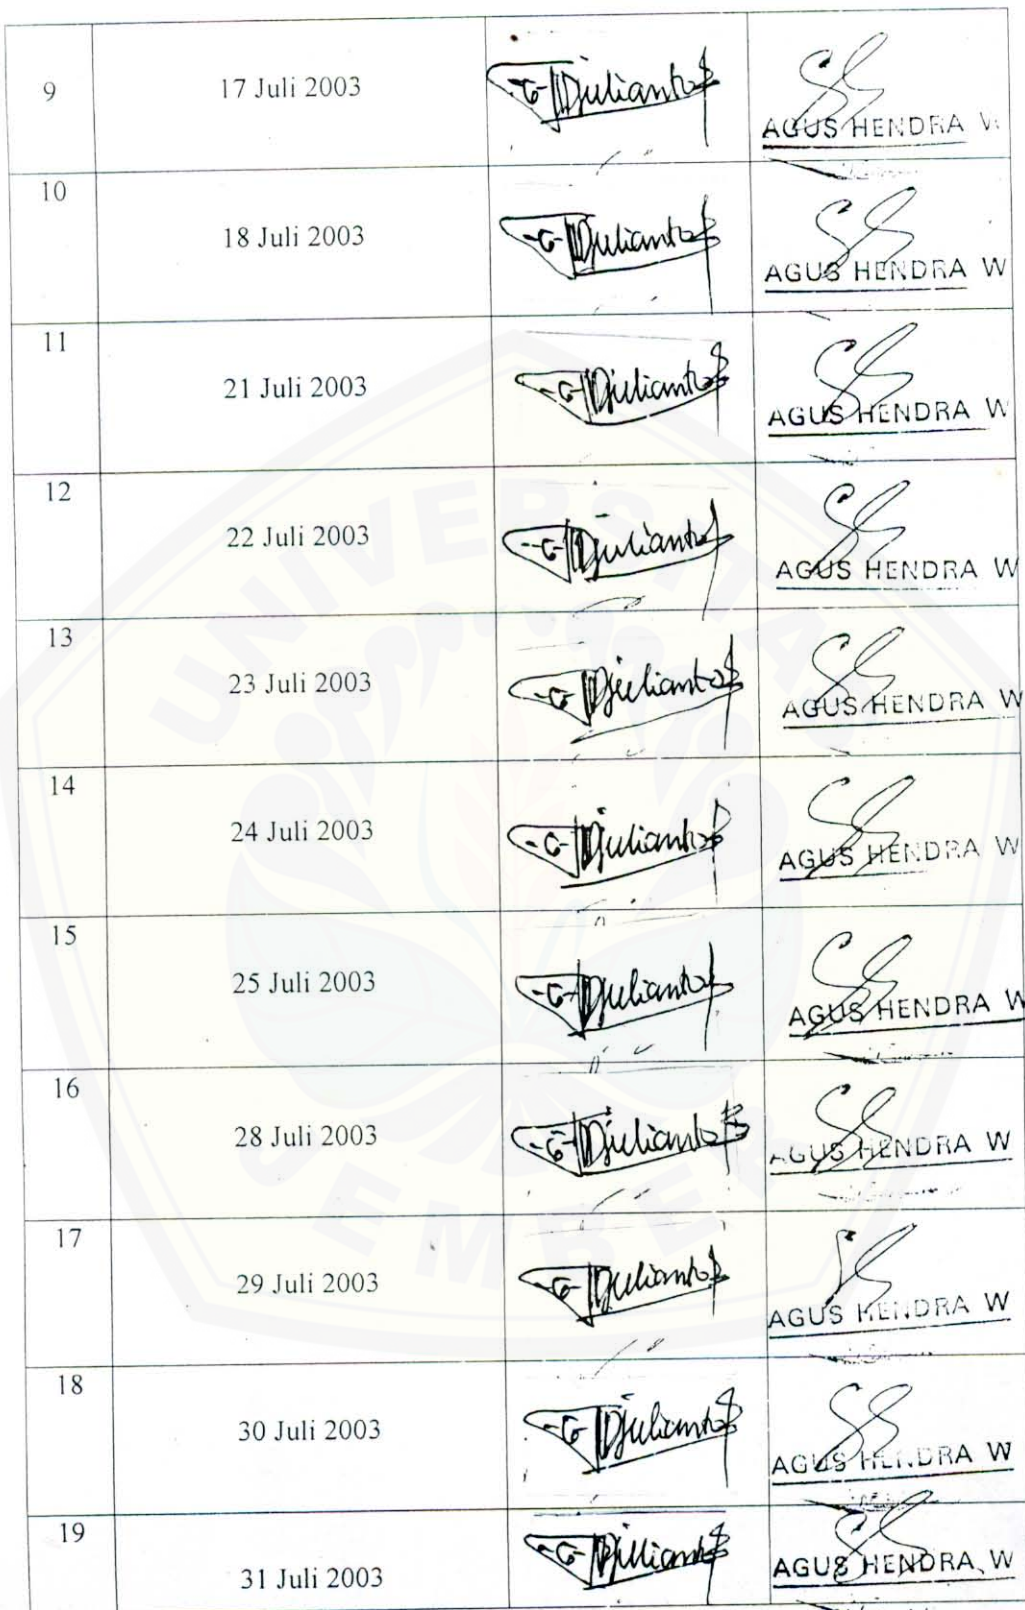 9 17 Juli 2003 Djulianto AGUS HENDRA W
10 18 Juli 2003 Djulianto AGUS HENDRA W
11 21 Juli 2003 Djulianto AGUS HENDRA W
12 22 Juli 2003 Djulianto AGUS HENDRA W
13 23 Juli 2003 Djulianto AGUS HENDRA W
14 24 Juli 2003 Djulianto AGUS HENDRA W
15 25 Juli 2003 Djulianto AGUS HENDRA W
16 28 Juli 2003 Djulianto AGUS HENDRA W
17 29 Juli 2003 Djulianto AGUS HENDRA W
18 30 Juli 2003 Djulianto AGUS HENDRA W
19 31 Juli 2003 Djulianto AGUS HENDRA W
UNIVERSITAS
JEMBER